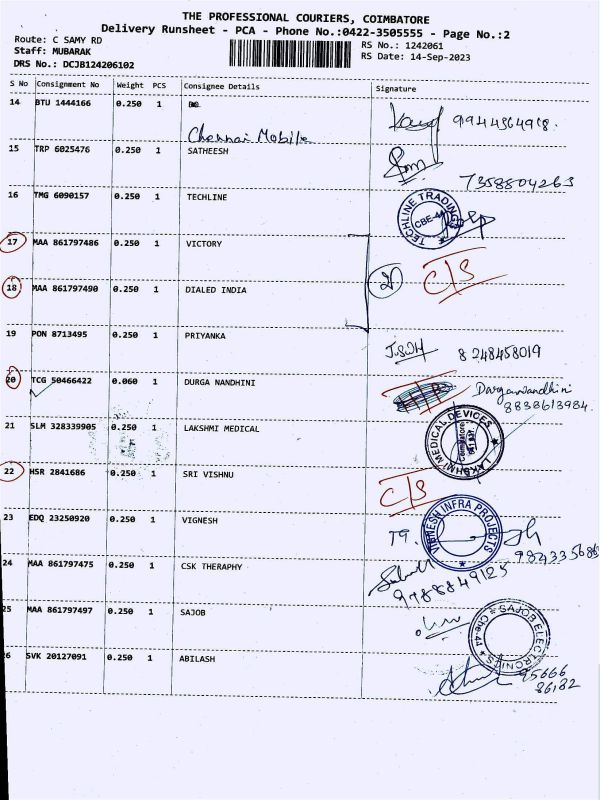 THE PROFESSIONAL COURIERS, COIMBATORE
Delivery Runsheet - PCA - Phone No.:0422-3505555 - Page No.:2
Route: C SAMY RD
Staff: MUBARAK
DRS No.: DCJB124206102
RS No.: 1242061
RS Date: 14-Sep-2023
S No Consignment No Weight PCS Consignee Details Signature
14 BTU 1444166 0.250 1
Chennai Mobile
15 TRP 6025476 0.250 1 SATHEESH
7358804263
16 TMG 6090157 0.250 1 TECHLINE
TECHLINE TRADING
CBE-44
17 MAA 861797486 0.250 1 VICTORY
C/S
18 MAA 861797490 0.250 1 DIALED INDIA
2
19 PON 8713495 0.250 1 PRIYANKA
8248458019
20 TCG 50466422 0.060 1 DURGA NANDHINI
Durganandhini
8838613984.
21 SLM 328339905 0.250 1 LAKSHMI MEDICAL
LAKSHMI MEDICAL DEVICES
Coimbatore
22 HSR 2841686 0.250 1 SRI VISHNU
C/S
23 EDQ 23250920 0.250 1 VIGNESH
VIGNESH INFRA PROJECTS
24 MAA 861797475 0.250 1 CSK THERAPHY
9788849125
25 MAA 861797497 0.250 1 SAJOB
SAJOB ELECTRONICS
Cbe-44
26 SVK 20127091 0.250 1 ABILASH
95666
86182